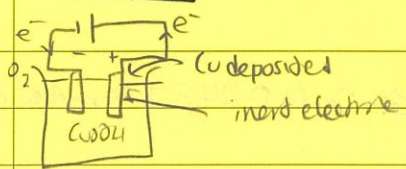 e⁻ e⁻
- +
O₂ Cu deposided
inert electrone
CuSO4